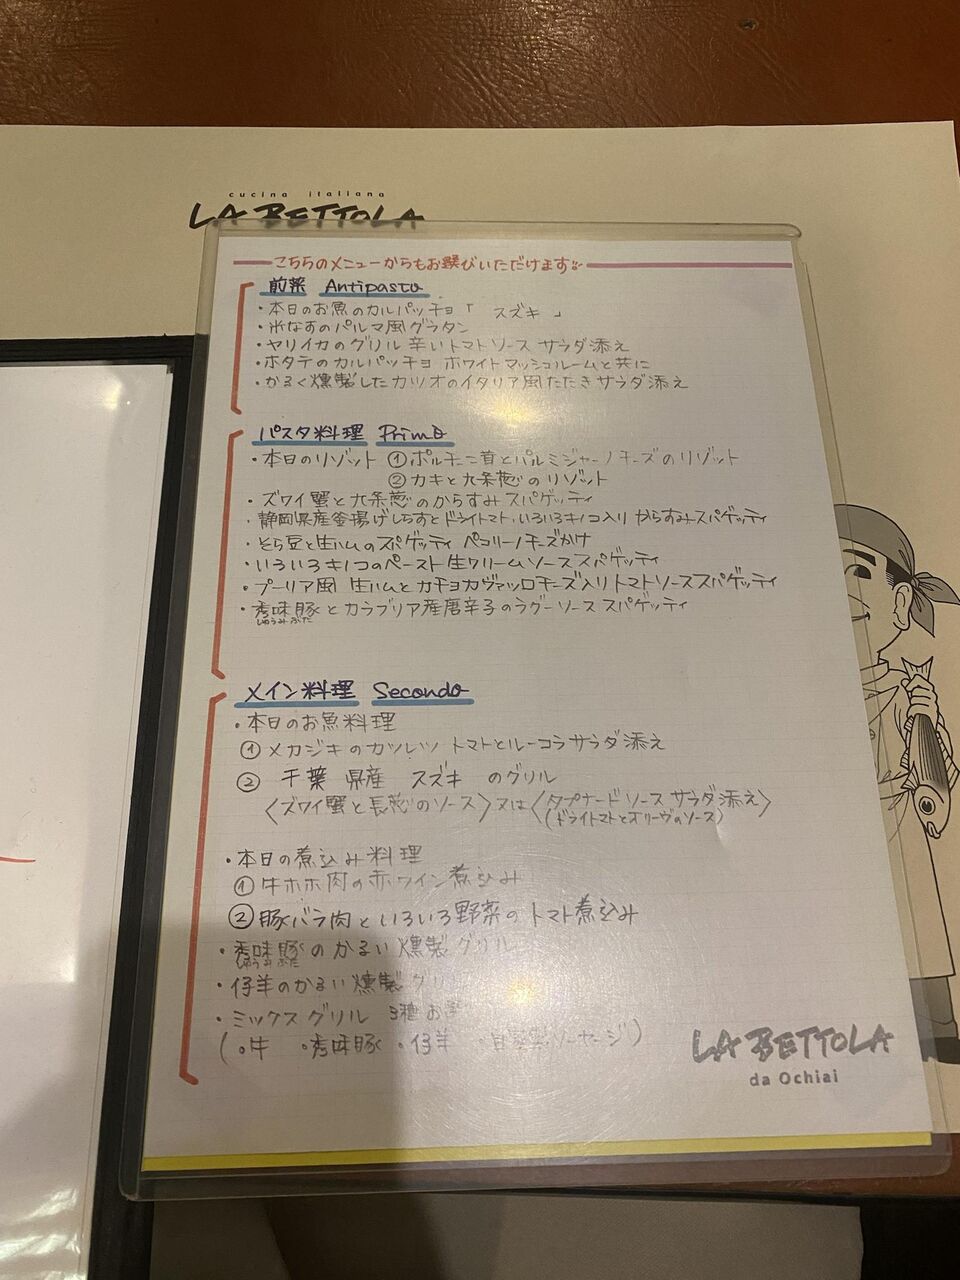 cucina italiana
LA BETTOLA
こちらのメニューからもお選びいただけます
前菜 Antipasto
・本日のお魚のカルパッチョ「 スズキ 」
・米なすのパルマ風グラタン
・ヤリイカのグリル 辛いトマトソース サラダ添え
・ホタテのカルパッチョ ホワイトマッシュルームと共に
・かるく燻製したカツオのイタリア風たたきサラダ添え
パスタ料理 Primo
・本日のリゾット ①ポルチーニ茸とパルミジャーノチーズのリゾット
②カキと九条葱のリゾット
・ズワイ蟹と九条葱のからすみスパゲッティ
・静岡県産釜揚げしらすとドライトマト・いろいろキノコ入り からすみスパゲッティ
・そら豆と生ハムのスパゲッティ ペコリーノチーズかけ
・いろいろキノコのペースト生クリームソーススパゲッティ
・プーリア風 生ハムとカチョカヴァッロチーズ入りトマトソーススパゲッティ
・秀味豚とカラブリア産唐辛子のラグーソース スパゲッティ
しゅうみぶた
メイン料理 Secondo
・本日のお魚料理
①メカジキのカツレツ トマトとルーコラサラダ添え
② 千葉 県産 スズキ のグリル
〈ズワイ蟹と長葱のソース〉又は〈タプナードソース サラダ添え〉
(ドライトマトとオリーヴのソース)
・本日の煮込み料理
①牛ホホ肉の赤ワイン煮込み
②豚バラ肉といろいろ野菜のトマト煮込み
・秀味豚のかるい燻製グリル
しゅうみぶた
・仔羊のかるい燻製グリ
・ミックスグリル 3種お
(・牛 ・秀味豚 ・仔羊 ・自家製ソーセージ)
LA BETTOLA
da Ochiai